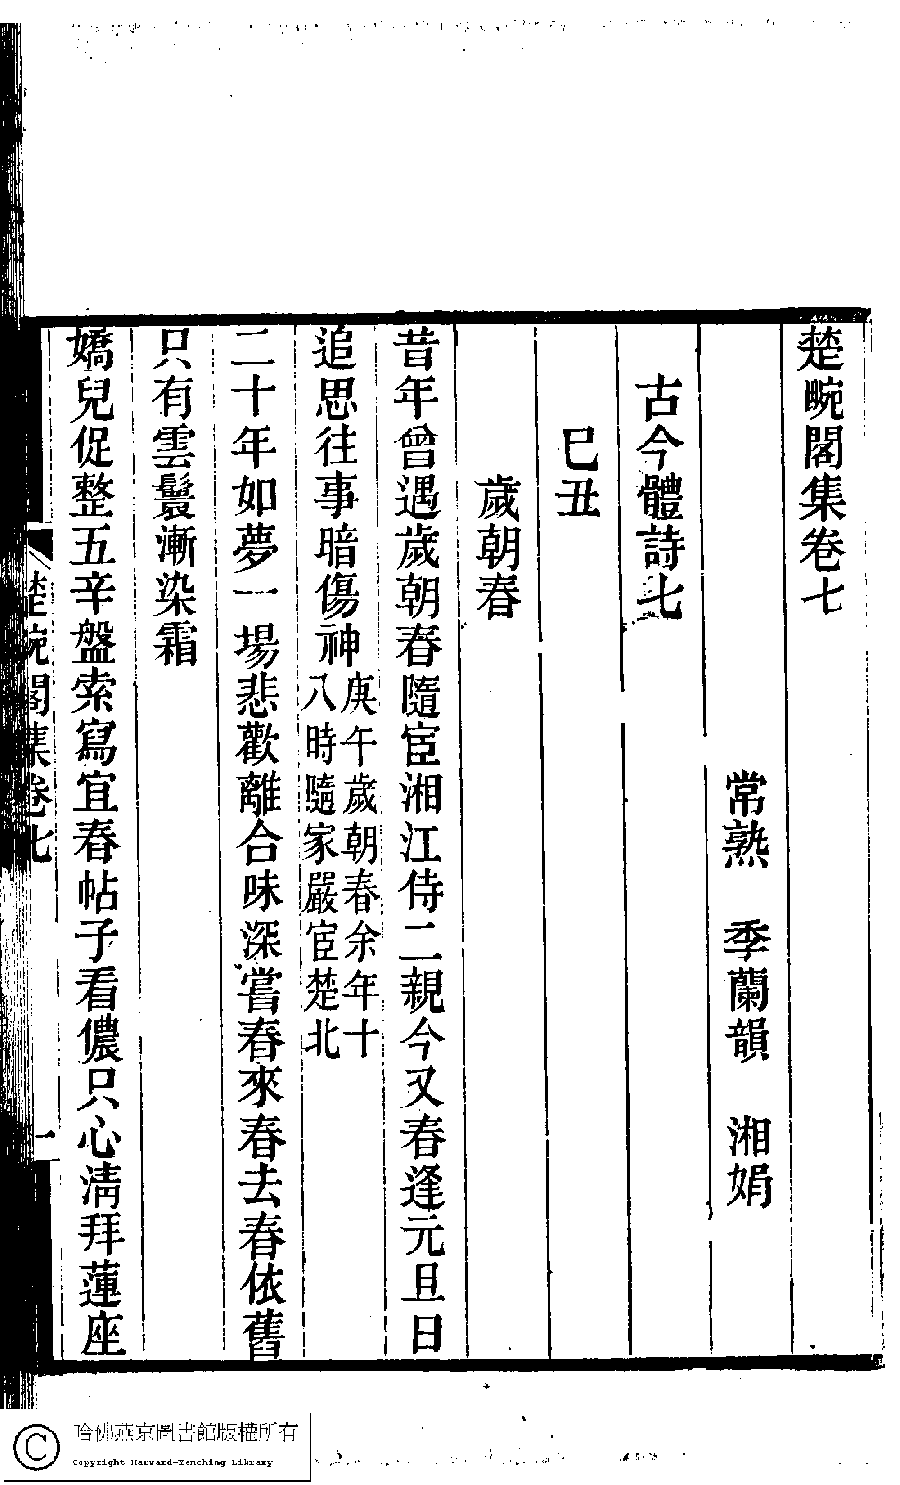 楚畹閣集卷七
常熟　季蘭韻　湘娟
古今體詩七
巳丑
歲朝春
昔年曾遇歲朝春隨宦湘江侍二親今又春逢元旦日
追思往事暗傷神庚午歲朝春余年十
八時隨家嚴宦楚北
二十年如夢一場悲歡離合味深嘗春來春去春依舊
只有雲鬟漸染霜
嬌兒促整五辛盤索寫宜春帖子看儂只心淸拜蓮座
楚畹閣集卷七
一
哈佛燕京圖書館版權所有
Copyright Harvard-Yenching Library